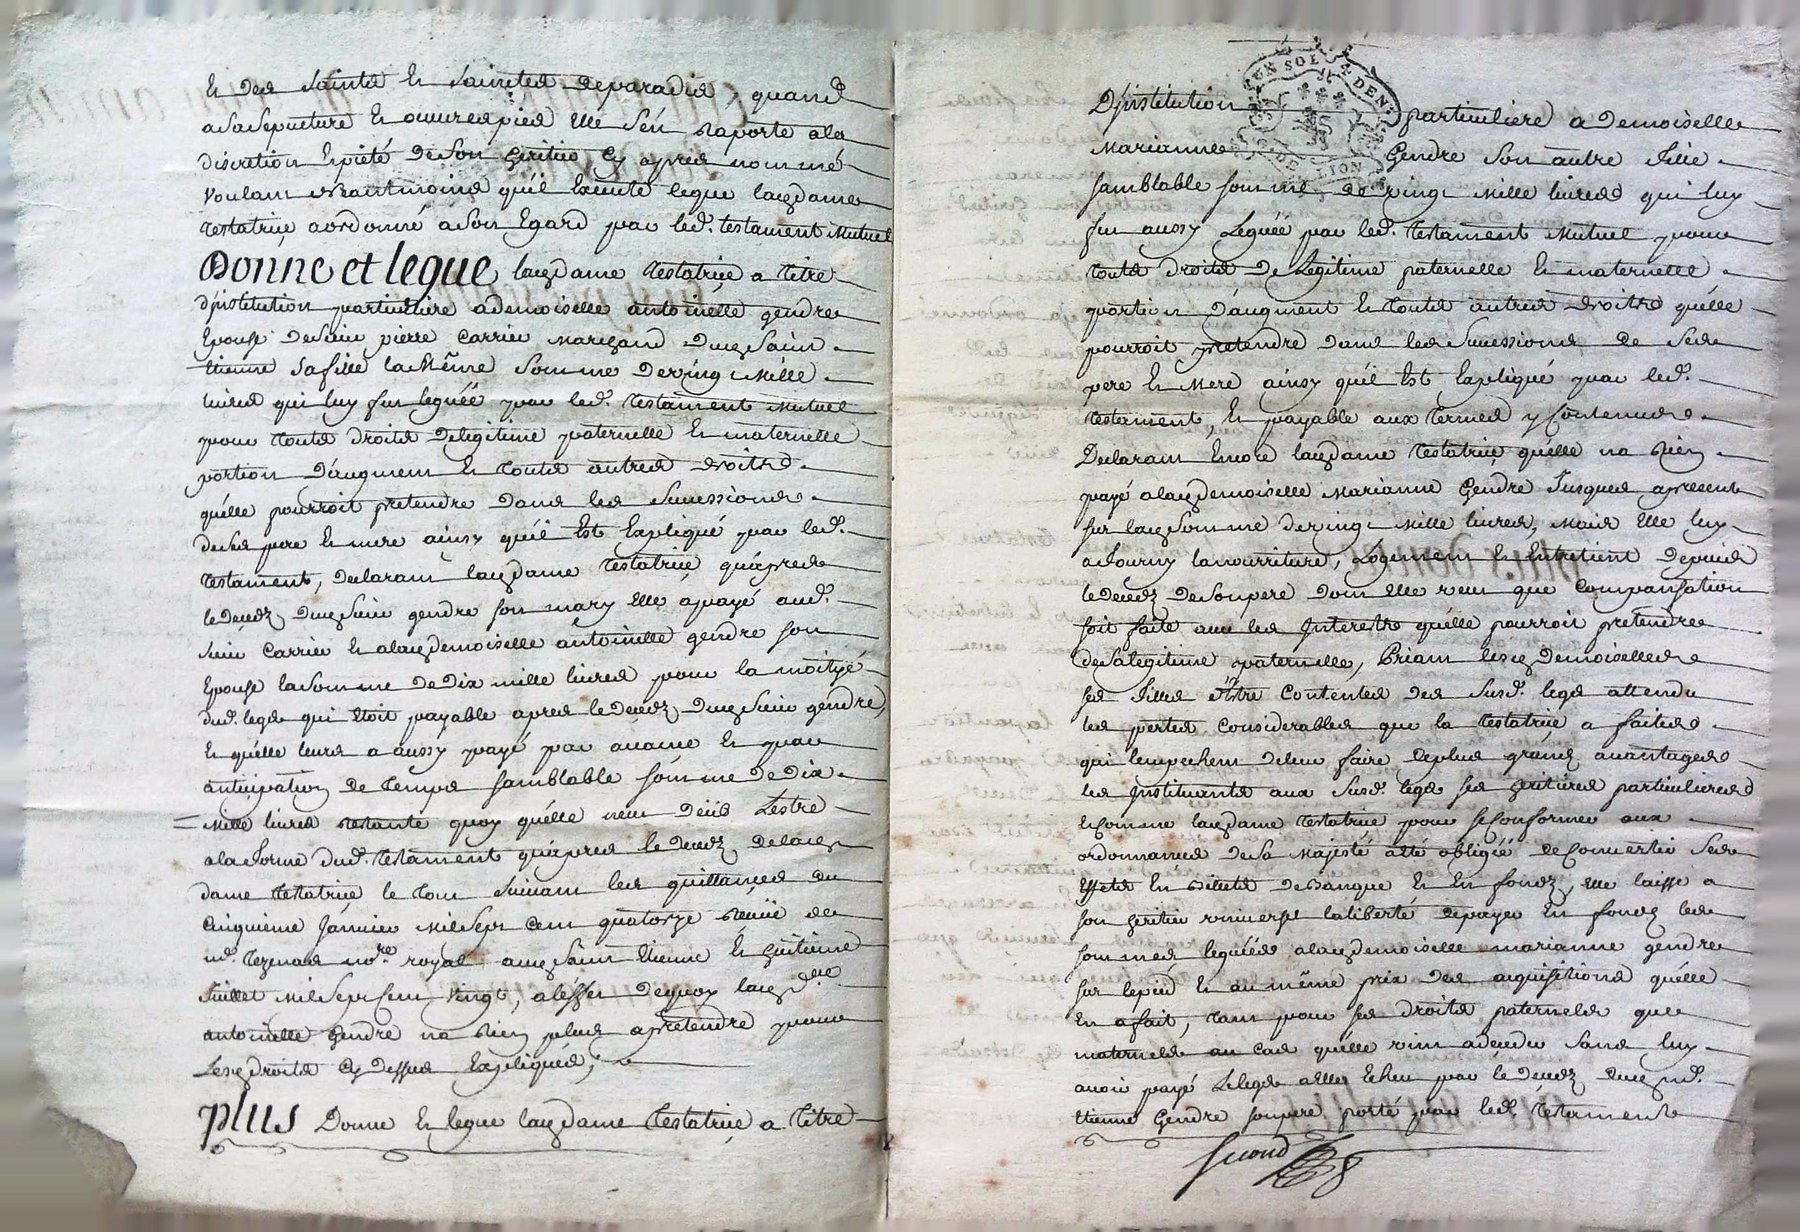 Et des saints Et saintes deparadis quand
asa sepulture Et œuvres pies Elle s'en raporte ala
discretion Et pieté de son heritier Cy apres nommé
Voulant Neantmoins qu'il Execute le que lad. dame
testatrice a ordonné a son Egard par led. testament Mutuel
Donne et legue, lad. dame testatrice a titre
d'institution particuliere a demoiselle antoinette gendre
Epouse de sieur pierre Carrier Marchand dud. Saint
Etienne sa fille la Même somme de vingt Mille
livres qui luy fut leguéé par led. testament Mutuel
pour touts droits delegitime paternelle Et maternelle
portion d'augment Et touts autres droits
qu'elle pourroit pretendre dans les successions
de ses pere Et mere ainsy qu'il Est Expliqué par led.
testament, declarant lad. dame testatrice qu'apres
le decedz dud. sieur gendre son mary Elle a payé aud.
sieur Carrier Et alad. demoiselle antoinette gendre son
Epouse la somme de Dix mille livres pour la moityé
dud. legs qui Etoit payable apres le Decedz dud. sieur gendre,
Et qu'elle leurs a aussy payé par avance Et par
anticipation de temps samblable somme de Dix
Mille livres restante quoy qu'elle neut deüe L'estre
a la forme dud. testament qu'apres le decedz de lad.
dame testatrice le tout suivant les quittances du
Cinquieme Janvier Mil sept Cent quatorze receüe de
Md. tezenas nore. royal aud. Saint Etienne Et huitieme
Juillet Mil sept Cent Vingt, a l'effet de quoy lad. dlle
antoinette gendre na rien plus a pretendre pour
Lesd. droits Cy dessus Expliqués;
plus Donne Et legue lad. dame testatrice a titre
D'institution particuliere a Demoiselle
Marianne Gendre son autre fille
samblable somme de vingt Mille livres qui luy
fut aussy Leguéé par led. testament Mutuel pour
touts droits de Legitime paternelle Et maternelle
portion d'augment Et touts autres droits qu'elle
pourroit pretendre dans les successions de ses
pere Et Mere ainsy qu'il Est Expliqué par led.
testament, Et payable aux termes y Contenus
Declarant Encore lad. dame testatrice qu'elle na rien
payé alad. demoiselle Marianne Gendre Jusques apresent
sur lad. somme de vingt Mille livres, Mais Elle luy
a fourny la nourriture, Logement Et Entretient Depuis
le decedz de son pere dont Elle veut que Compansation
soit faite avec les Interests qu'elle pourroit pretendre
de sa legitime paternelle, Priant lesd. Demoiselles
ses filles d'Estre Contentes des susd. legs attendu
les pertes Considerables que la testatrice a faites
qui l'empechent de leur faire de plus grands avantages
les Instituants aux susd. legs ses heritieres particulieres
Et Comme lad. dame testatrice pour se Conformer aux
ordonnances de Sa Majesté a Eté obligéé de Convertir ses
Effets En Billets de Banque Et En fondz, Elle laisse a
son heritier universel la liberté de payer En fondz les
sommes leguéés alad. demoiselle marianne gendre
sur le pied Et au même prix des acquisitions qu'elle
En a fait, tant pour ses droits paternels que
maternels au cas qu'elle vint a deceder sans luy
avoir payé Le legs a Elle Echeu par le decedz dud. Md.
Etienne Gendre son pere porté par led. testament
second
UN SOL DEN.
DE LION